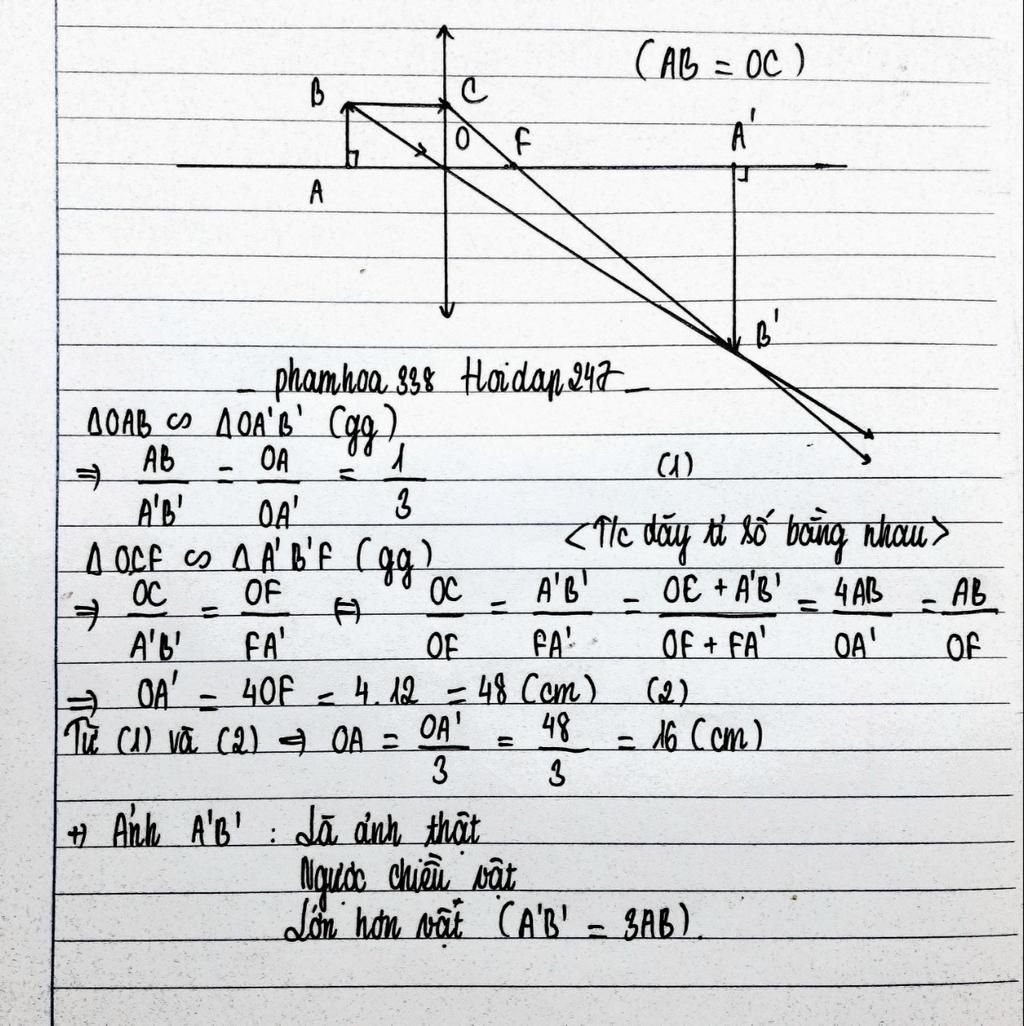 (AB = OC)
B C
O F A'
A
B'
_ phamhoa 338 Hoidap247 _
ΔOAB ∽ ΔOA'B' (gg)
⇒ AB/A'B' = OA/OA' = 1/3 (1)
<T/c dãy tỉ số bằng nhau>
Δ OCF ∽ Δ A'B'F (gg)
⇒ OC/A'B' = OF/FA' ⇔ OC/OF = A'B'/FA' = OC + A'B'/OF + FA' = 4AB/OA' = AB/OF
⇒ OA' = 4OF = 4.12 = 48 (cm) (2)
Từ (1) và (2) ⇒ OA = OA'/3 = 48/3 = 16 (cm)
+) Ảnh A'B' : Là ảnh thật
Ngược chiều vật
Lớn hơn vật (A'B' = 3AB).